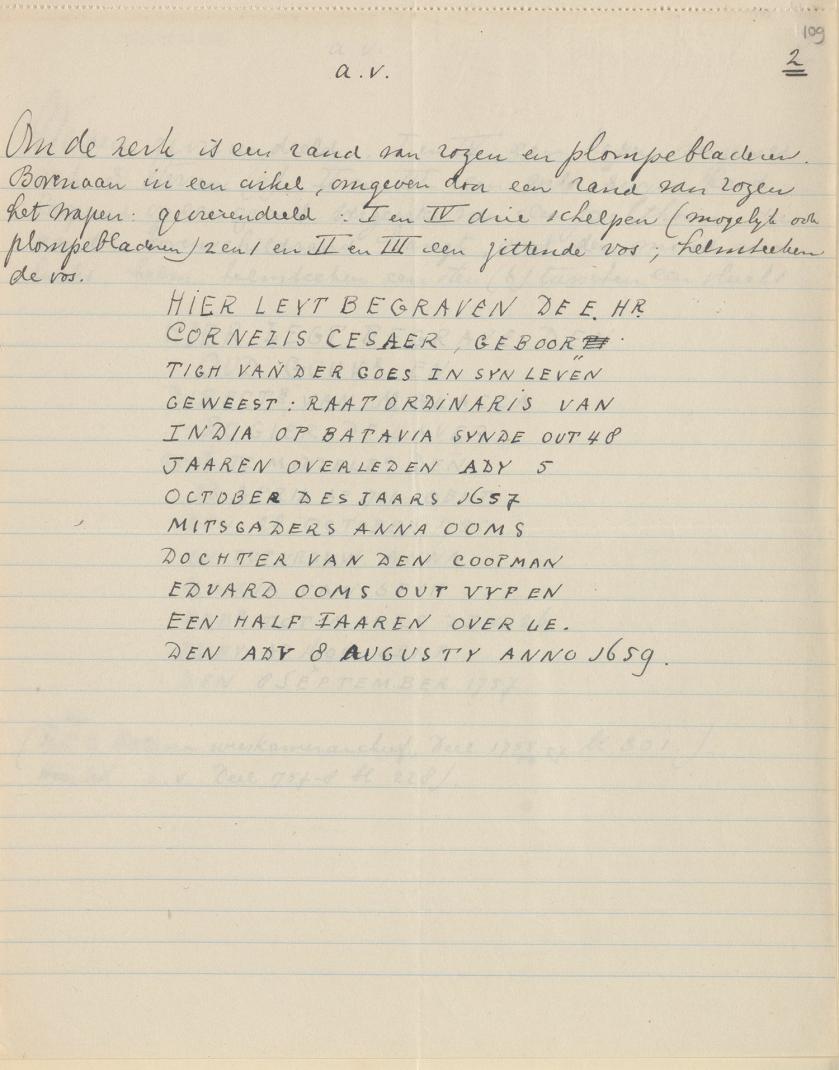 109
2
a.v.
Om de zerk is een rand van rozen en plompebladeren.
Bovenaan in een cirkel, omgeven door een rand van rozen
het wapen: gevierendeeld: I en IV drie schelpen (mogelyk ook
plompebladeren) 2 en 1 en II en III een zittende vos; helmteeken
de vos.
HIER LEYT BEGRAVEN DE E. HR
CORNELIS CESAER, GEBOOR
TIGH VAN DER GOES IN SYN LEVEN
GEWEEST: RAAT ORDINARIS VAN
INDIA OP BATAVIA SYNDE OUT 48
JAAREN OVERLEDEN ADY 5
OCTOBER DES JAARS 1657
MITSGADERS ANNA OOMS
DOCHTER VAN DEN COOPMAN
EDVARD OOMS OUT VYF EN
EEN HALF IAAREN OVERLE.
DEN ADY 8 AUGUSTY ANNO 1659.